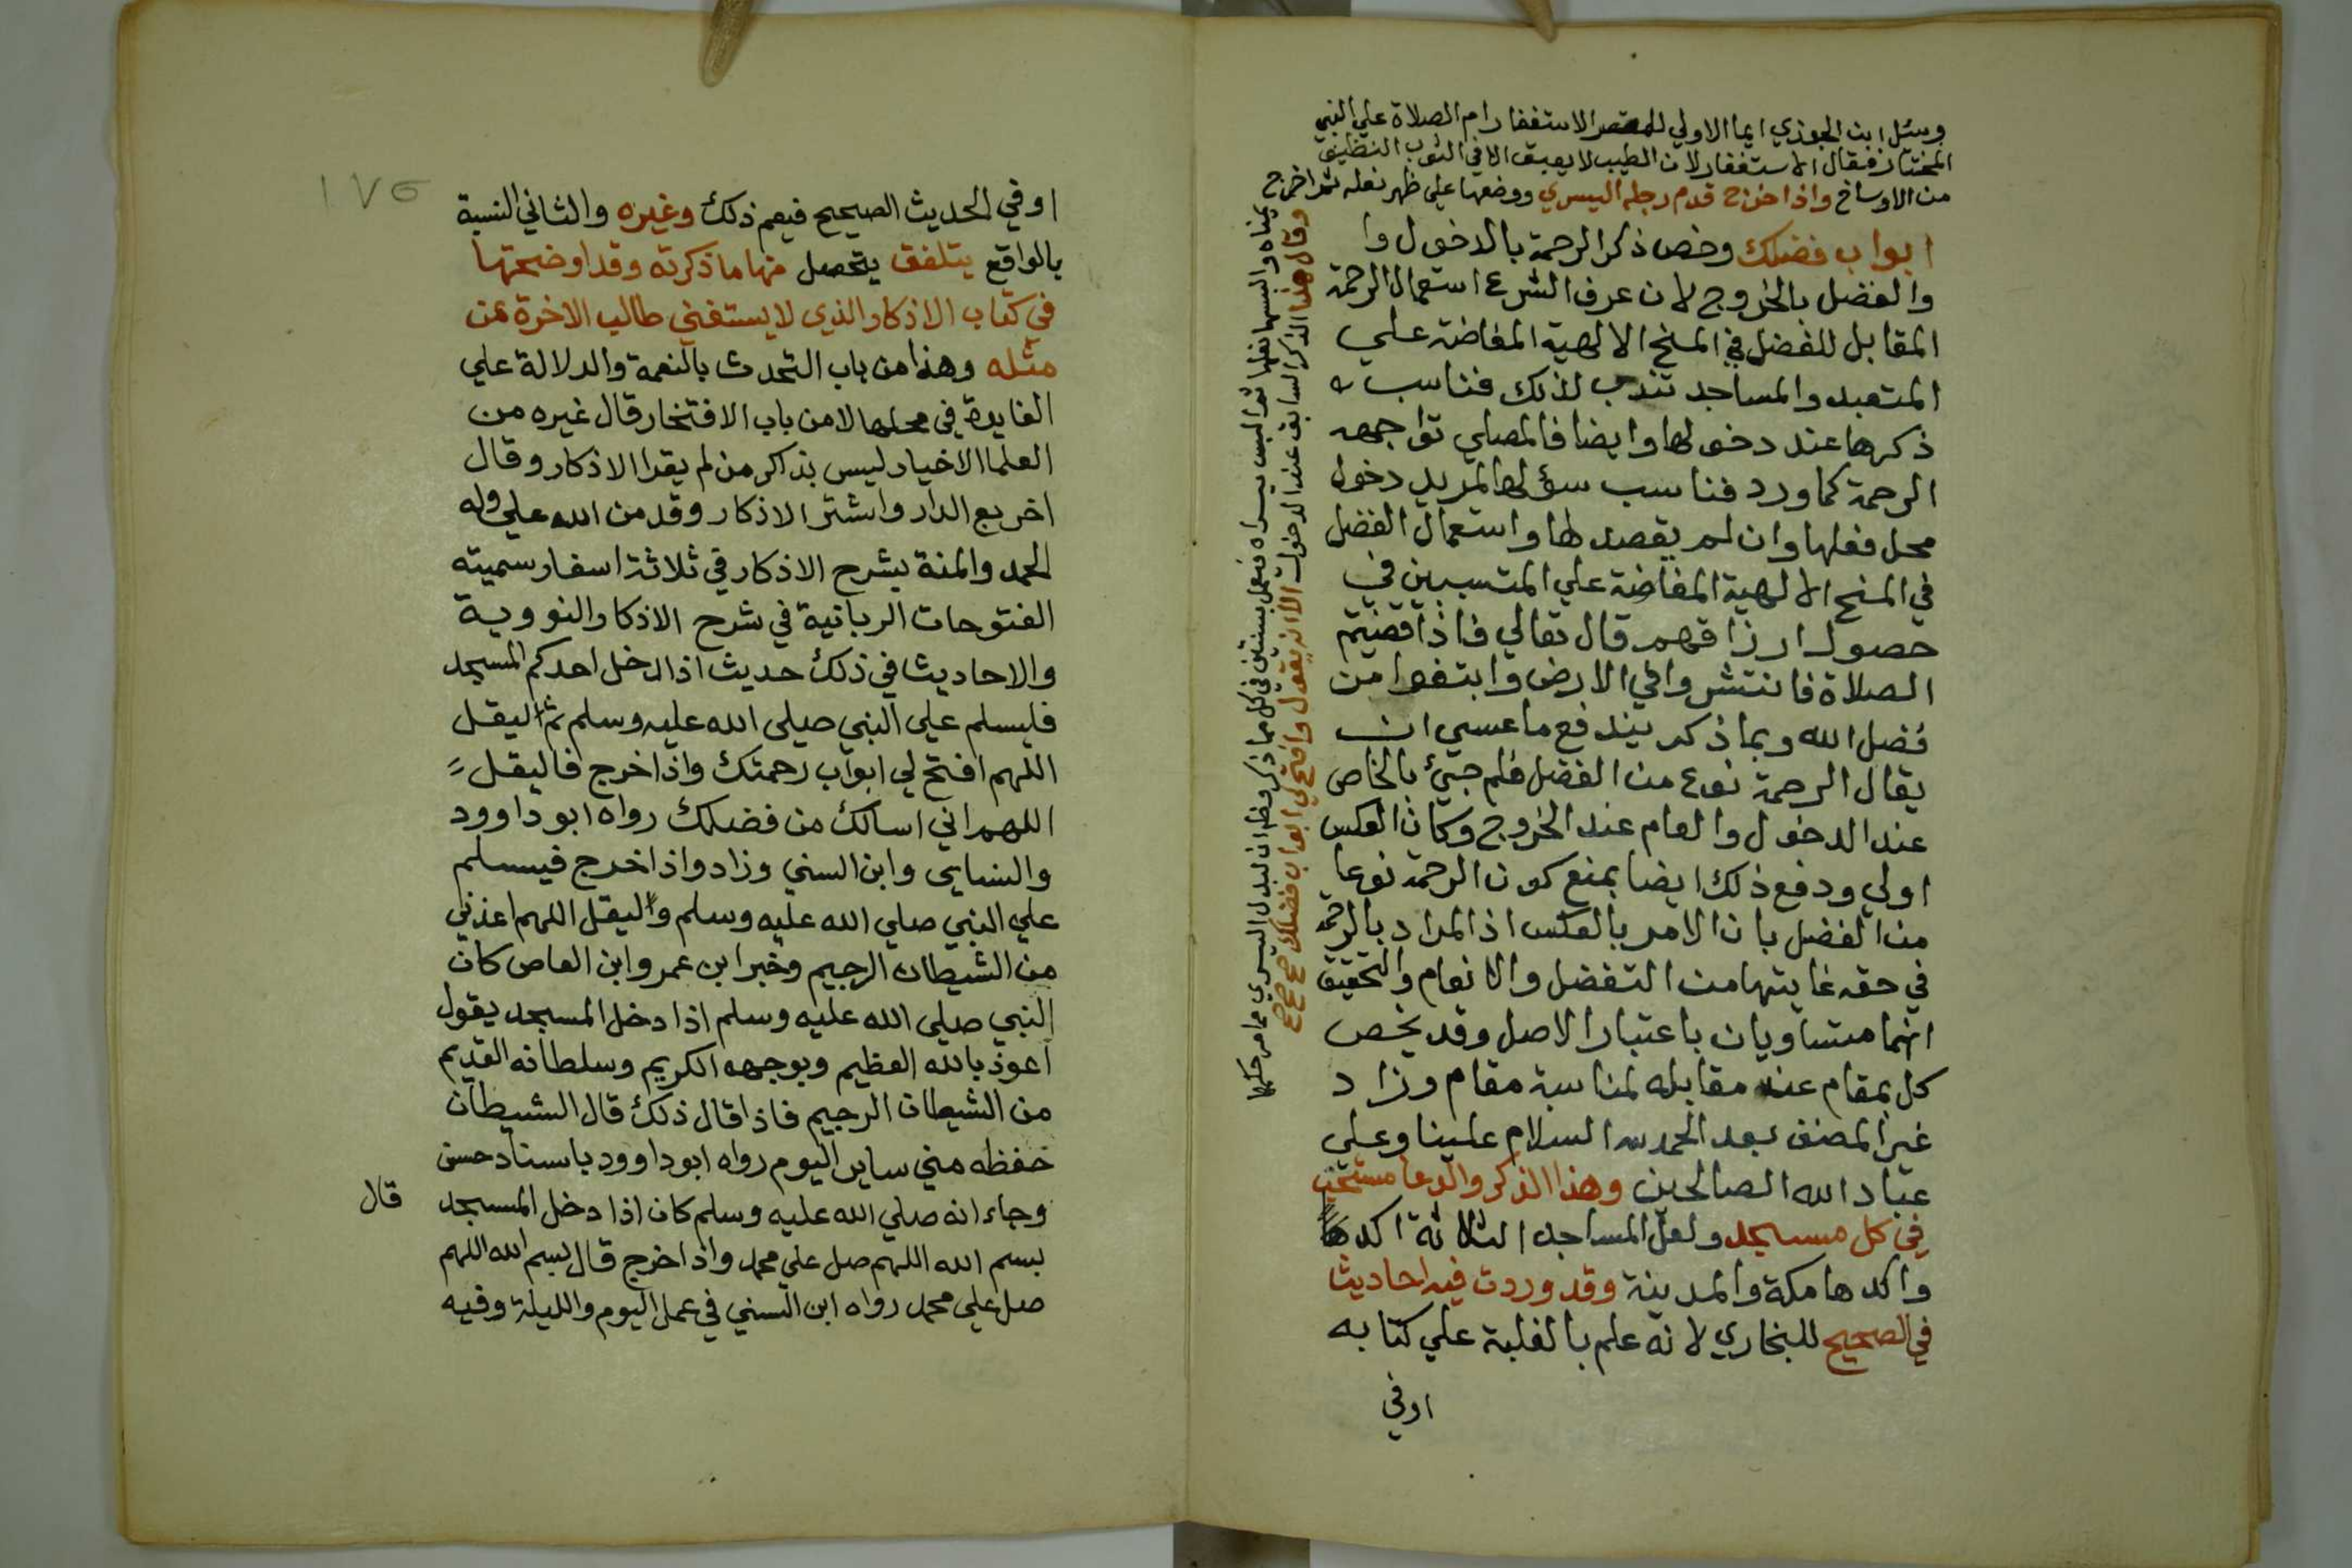 وسئل ابن الجوزي ايما الاولي الاستغفار ام الصلاة علي النبي
المختار فقال الاستغفار لان الطيب لا يعبق الا في الثوب النظيف
من الاوساخ واذا خرج قدم رجله اليسري ووضعها علي ظهر نعله ثم اخرج
يمناه والبسها نعلها ثم البس يسراه فيعمل بسنتين في كل مما ذكر
وقال هذا الذكر السابق عند الدخول الا انه يقول وافتح لي ابواب فضلك صح صح صح
ابواب فضلك وخص ذكر الرحمة بالدخول وا
والفضل بالخروج لان عرف الشرع استعمال الرحمة
المقابل للفضل في المنح الالهية المفاضة علي
المتعبد والمساجد تندب لذلك فناسب
ذكرها عند دخولها وايضا فالمصلي تواجهه
الرحمة كما ورد فناسب سؤلها لمريد دخول
محل فعلها وان لم يقصد لها واستعمال الفضل
في المنح الالهية المفاضة علي المتسببين في
حصول ارزاقهم قال تعالي فاذا قضيتم
الصلاة فانتشروا في الارض وابتغوا من
فضل الله وبما ذكر يندفع ما عسي ان
يقال الرحمة نوع من الفضل فلم جيئ بالخاص
عند الدخول والعام عند الخروج وكان العكس
اولي ودفع ذلك ايضا بمنع كون الرحمة نوعا
من الفضل بان الامر بالعكس اذ المراد بالرحمة
في حقه غايتها من التفضل والانعام والتحقيق
انهما متساويان باعتبار الاصل وقد يخص
كل بمقام عند مقابله لمناسبة مقام وزاد
غير المصنف بعد الحمد لله السلام علينا وعلي
عباد الله الصالحين وهذا الذكر والدعا مستحب
في كل مسجد ولعل المساجد الثلاثة اكدها
واكدها مكة والمدينة وقد وردت فيه احاديث
في الصحيح للبخاري لانه علم بالغلبة علي كتابه
اوفي
١٧٥
اوفي الحديث الصحيح فيعم ذلك وغيره والثاني النسبة
بالواقع يتلفق يتحصل منها ما ذكرته وقد اوضحتها
في كتاب الاذكار الذي لا يستغني طالب الاخرة عن
مثله وهذا من باب التحدث بالنعمة والدلالة علي
الفايدة في محلها لا من باب الافتخار قال غيره من
العلما الاخيار ليس بذاكر من لم يقرا الاذكار وقال
اخر بع الدار واشتر الاذكار وقد من الله علي وله
الحمد والمنة بشرح الاذكار في ثلاثة اسفار سميته
الفتوحات الربانية في شرح الاذكار النووية
والاحاديث في ذلك حديث اذا دخل احدكم المسجد
فليسلم علي النبي صلي الله عليه وسلم ثم اليقل
اللهم افتح لي ابواب رحمتك واذا خرج فاليقل
اللهم اني اسالك من فضلك رواه ابو داوود
والنسايي وابن السني وزاد واذا خرج فيسلم
علي النبي صلي الله عليه وسلم واليقل اللهم اعذني
من الشيطان الرجيم وخبر ابن عمر وابن العاص كان
النبي صلي الله عليه وسلم اذا دخل المسجد يقول
اعوذ بالله العظيم وبوجهه الكريم وسلطانه القديم
من الشيطان الرجيم فاذا قال ذلك قال الشيطان
حفظه مني ساير اليوم رواه ابو داوود باسناد حسن
وجاء انه صلي الله عليه وسلم كان اذا دخل المسجد
قال
بسم الله اللهم صل علي محمد واذا خرج قال بسم الله اللهم
صل علي محمد رواه ابن السني في عمل اليوم والليلة وفيه